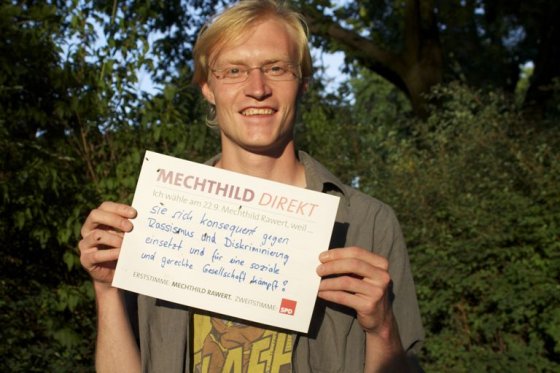 MECHTHILD DIREKT
Ich wähle am 22.9. Mechthild Rawert, weil ...
sie sich konsequent gegen
Rassismus und Diskriminierung
einsetzt und für eine soziale
und gerechte Gesellschaft kämpft!
ERSTSTIMME: MECHTHILD RAWERT. ZWEITSTIMME: SPD